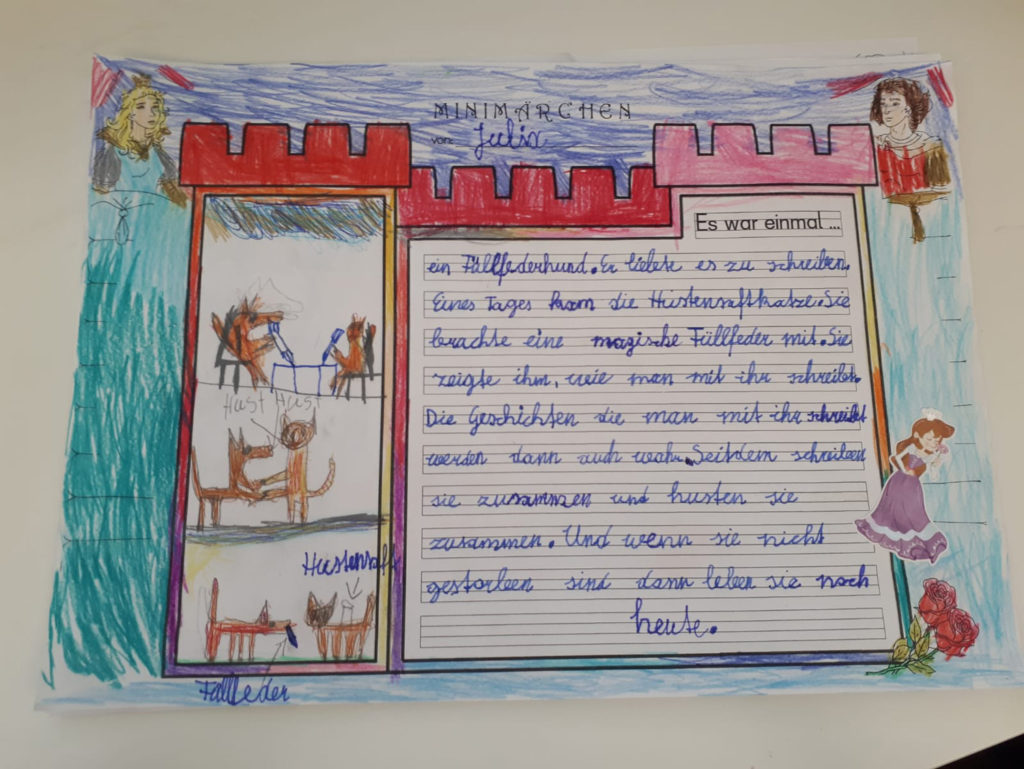 MINIMÄRCHEN
von: Julia
Es war einmal ...
ein Füllfederhund. Er liebte es zu schreiben.
Eines Tages kam die Hustensaftkatze. Sie
brachte eine magische Füllfeder mit. Sie
zeigte ihm, wie man mit ihr schreibt.
Die Geschichten die man mit ihr schreibt
werden dann auch wahr. Seitdem schreiben
sie zusammen und husten sie
zusammen. Und wenn sie nicht
gestorben sind dann leben sie noch
heute.
Hust Hust
Hustensaft
Füllfeder